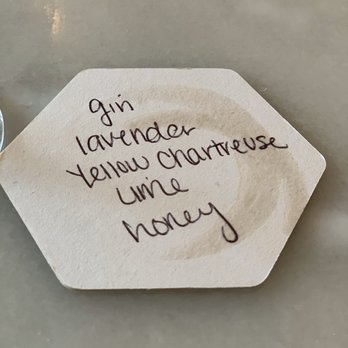 gin
lavender
Yellow Chartreuse
Lime
honey